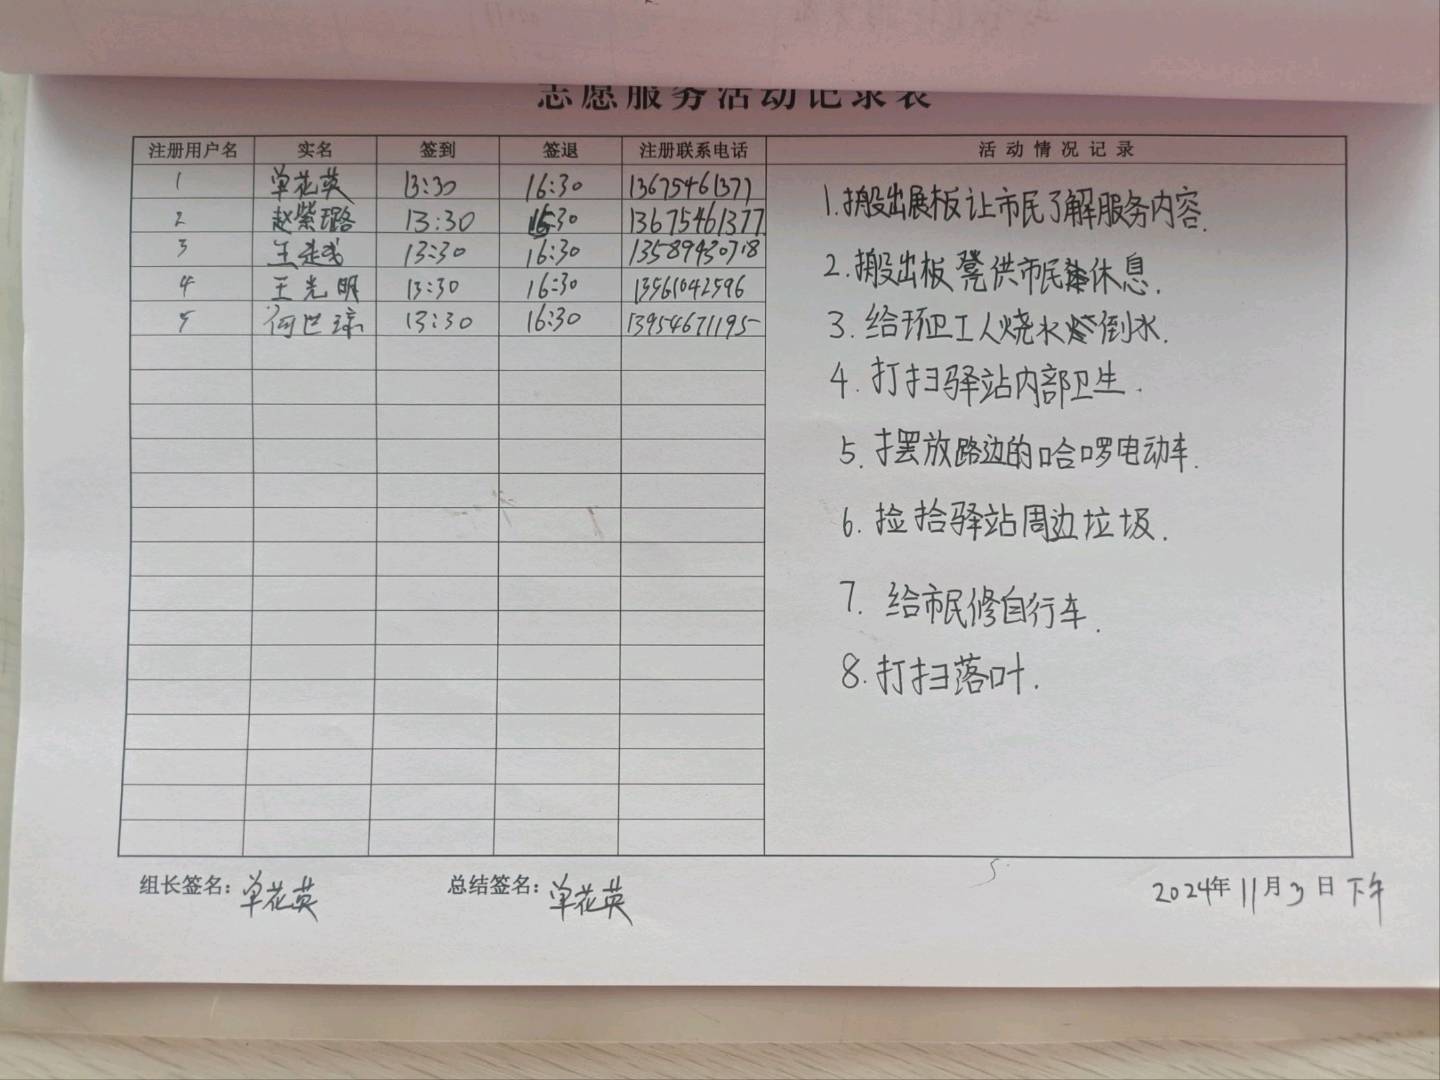 志愿服务活动记录表
注册用户名 实名 签到 签退 注册联系电话 活动情况记录
1 单花英 13:30 16:30 13675461377
2 赵紫璐 13:30 15:30 13675461377
3 王 13:30 16:30 13589430718
4 王光明 13:30 16:30 13561042596
5 何世琼 13:30 16:30 13954671195
1.搬出展板让市民了解服务内容.
2.搬出板凳供市民休息.
3.给环卫工人烧水倒水.
4.打扫驿站内部卫生.
5.摆放路边的哈啰电动车.
6.捡拾驿站周边垃圾.
7.给市民修自行车.
8.打扫落叶.
组长签名：单花英 总结签名：单花英 2024年11月3日下午